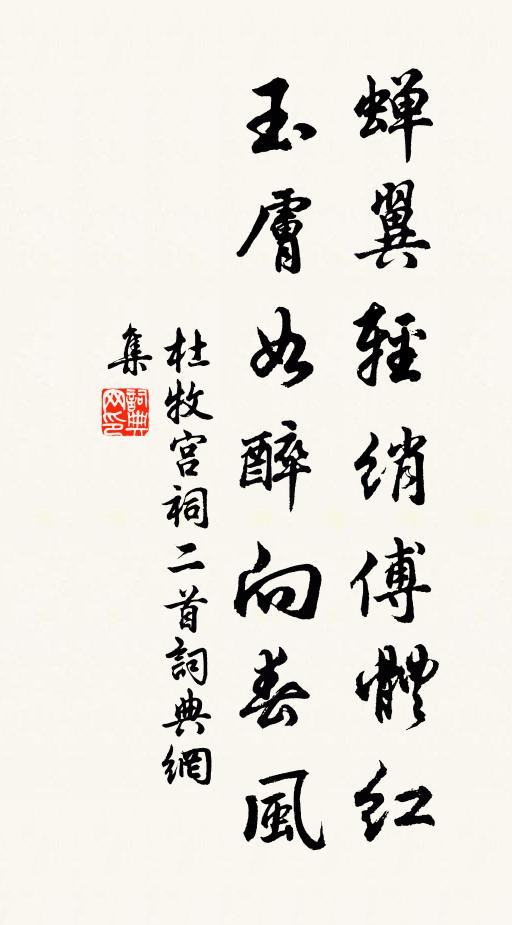 蟬翼輕綃傅體紅
玉膚如醉向春風
杜牧宮祠二首詞典網
集
詞典
网印